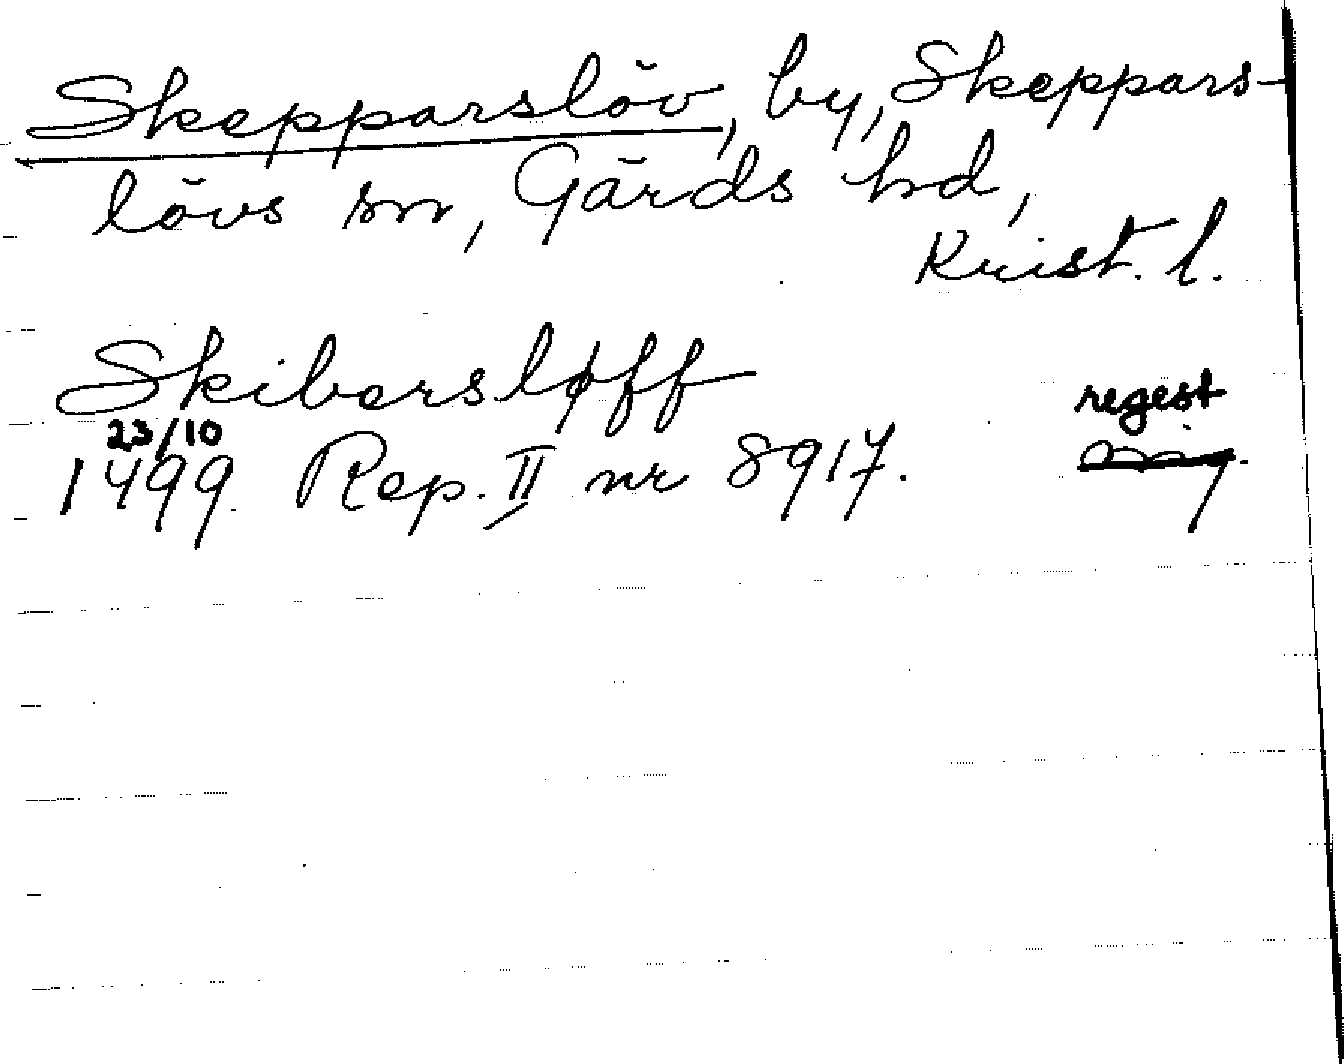 Skepparslöv, by, Skeppars-
lövs sn, Gärds hd,
Krist. l.
Skibersløff
23/10 regest
1499 Rep. II nr 8917.